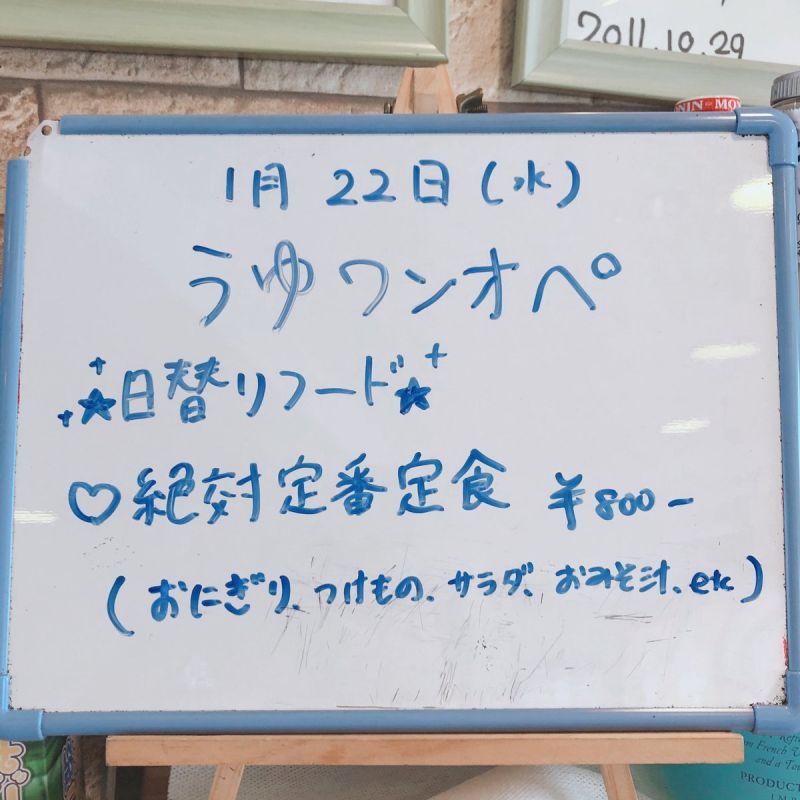 2011.10.29
NIN-MO
1月 22日(水)
うゆワンオペ
☆日替りフード☆
♡絶対定番定食 ¥800-
(おにぎり、つけもの、サラダ、おみそ汁、etc)
French
and a
PRODUCT